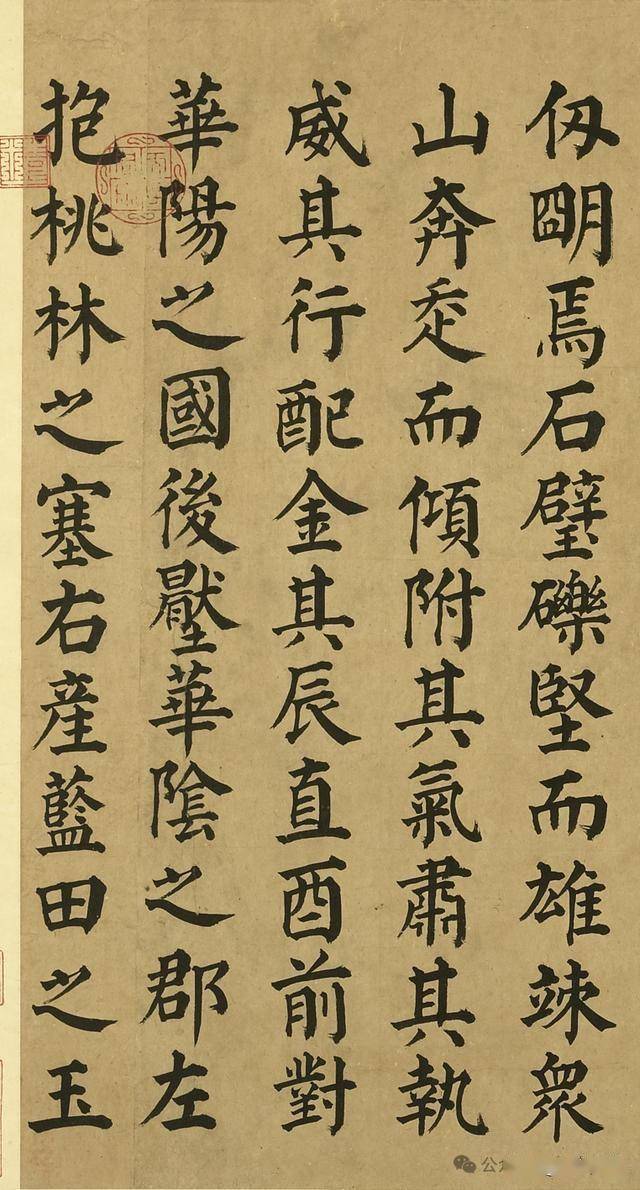 仭朙焉石壁礫堅而雄竦衆
山奔走而傾附其氣肅其執
威其行配金其辰直酉前對
華陽之國後壓華陰之郡左
抱桃林之塞右産藍田之玉
公